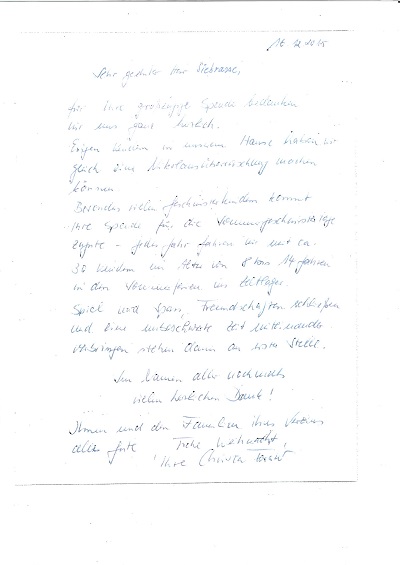 16.12.2015
Sehr geehrter Herr Siebrasse,
für Ihre großzügige Spende bedanken
wir uns ganz herzlich.
Einigen Kindern in unserem Hause haben wir
gleich eine Nikolausüberraschung machen
können.
Besonders vielen Geschwisterkindern kommt
Ihre Spende für die Sommergeschwistertage
zugute - jedes Jahr fahren wir mit ca.
30 Kindern im Alter von 8 bis 14 Jahren
in den Sommerferien ins Zeltlager.
Spiel und Spass, Freundschaften schließen
und eine unbeschwerte Zeit miteinander
verbringen stehen dann an erster Stelle.
Im Namen aller nochmals
vielen herzlichen Dank!
Ihnen und den Familien ihres Vereins
alles Gute Frohe Weihnacht,
Ihre Christa